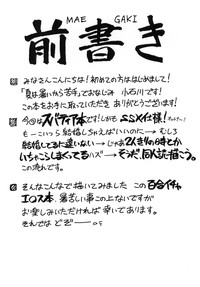 MAE GAKI
前書き
みなさんこんにちは!初めての方ははじめまして!
「夏は暑いから苦手」でおなじみ 小石川です!
この本をお手に取っていただき ありがとうございます!
今回はスパティア本です!しかもSSX仕様!
もーこいつら結婚しちゃえばいいのに→むしろ
結婚してるに違いない→じゃあ2人きりの時とか
いちゃこらしまくってるハズ→そうだ、同人誌描こう。
この流れです。
そんなこんなで描いてみました この百合イチャ
エロス本、暑苦しい事この上ないですが
お楽しみいただければ幸いであります。
それでは どぞー